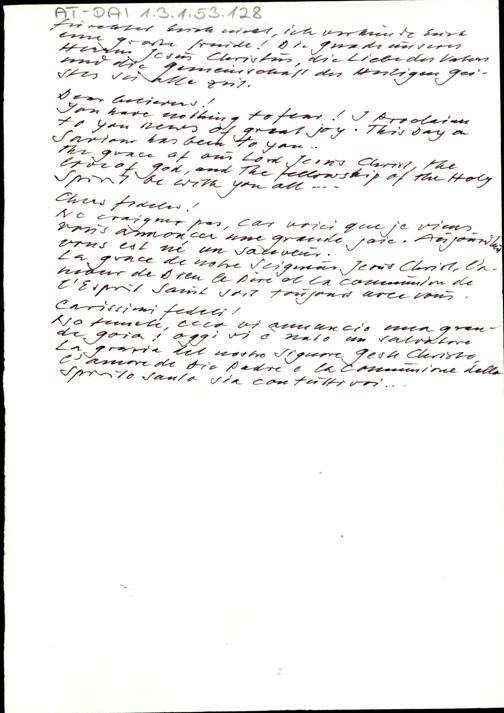 AT-DAI 1.3.1.53.128
Fürchtet Euch nicht, ich verkünde Euch
eine große Freude! Die Gnade unseres
Herrn Jesus Christus, die Liebe des Vaters
und die Gemeinschaft des Heiligen Gei-
stes sei alle Zeit.
Dear believers!
You have nothing to fear! I proclaim
to you news of great joy. This Day a
Saviour has been to you..
The grace of our Lord Jesus Christ, the
love of god, and the fellowship of the Holy
Spirit be with you all ...
Chers fideles!
Ne craignez pas, car voici que je viens
vous annoncer une grande joie. Aujourd'hui
vous est né un sauveur.
La grace de notre Seigneur Jesus Christ, l'a-
mour de Dieu le Père et la communion de
l'Esprit Saint soit toujours avec vous.
Carissimi fedeli!
Non temete, ecco vi annuncio una gran-
de goia! oggi vi è nato un salvatore
La grazia del nostro Signore Gesù Christo,
l'amore de Dio Padre e la comunione dello
Spirito Santo sia con tutti voi...